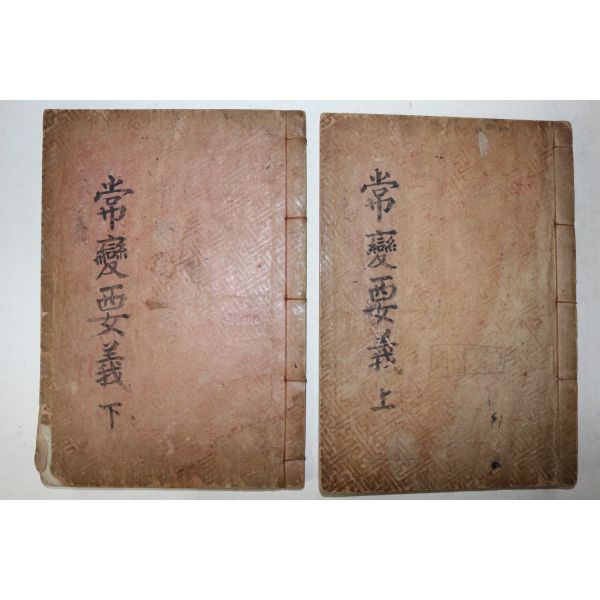 常變要義 上
常變要義 下